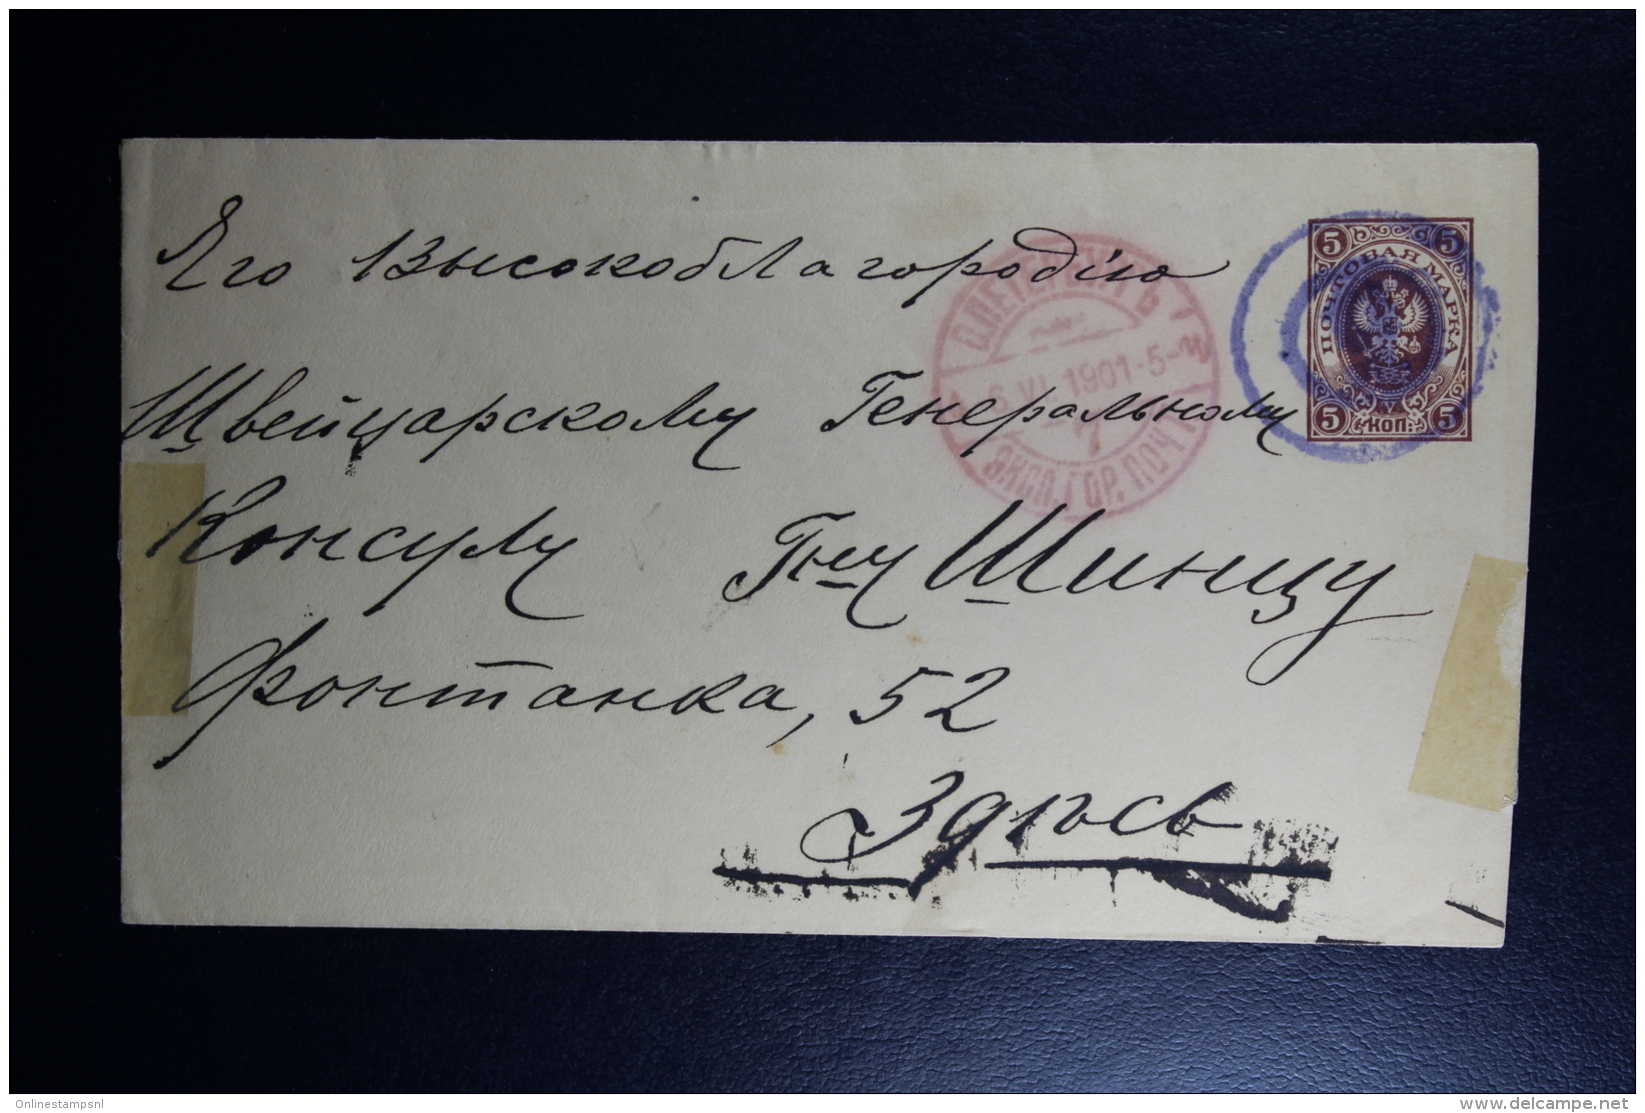 Его Высокоблагородію
Швейцарскому Генеральному
Консулу Г-ну Шинцу
Фонтанка, 52
Здѣсь
5 5
ПОЧТОВАЯ МАРКА
5 КОП. 5
С.ПЕТЕРБУРГЪ
6.VI.1901.5-
7
ЭКСП. ГОР. ПОЧТ
Onlinestampsnl
www.delcampe.net